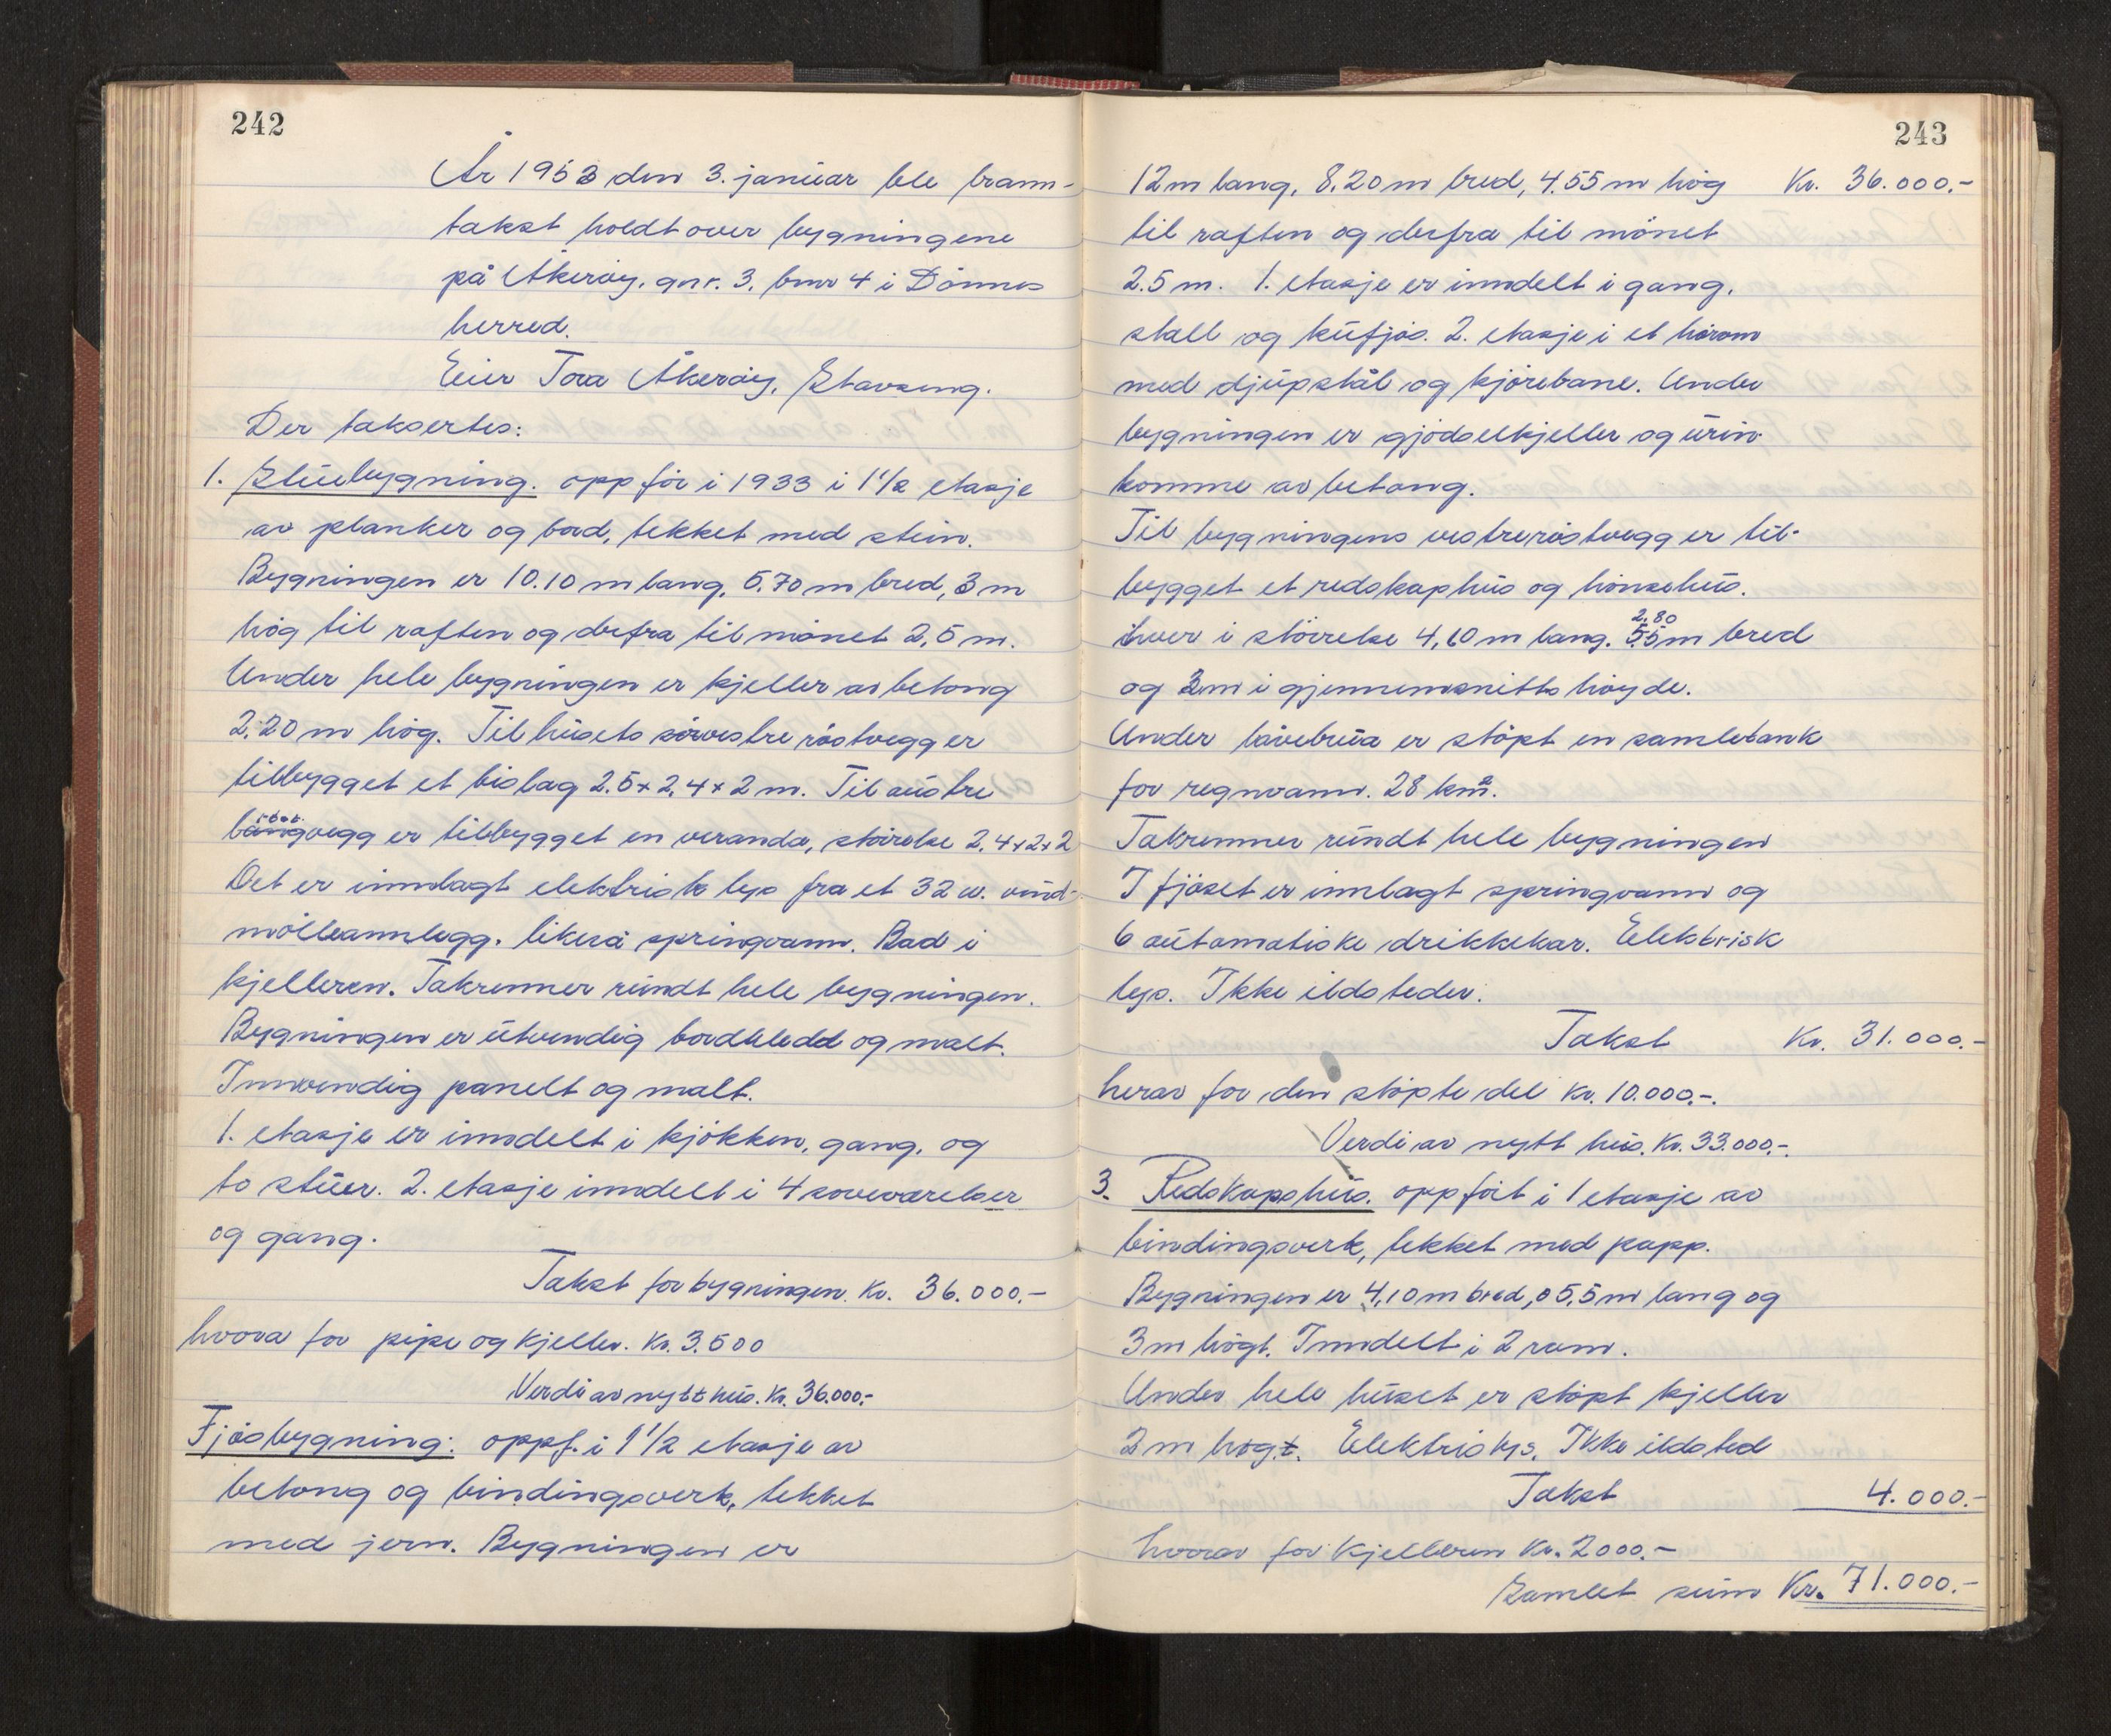 242
År 1953 den 3. januar ble brann-
takst holdt over bygningene
på Åkerøy, gnr. 3, bnr 4 i Dönnes
herred.
Eier Tora Åkeröy, Stavseng.
Der taksertes:
1. Stuebygning. oppför i 1933 i 1 1/2 etasje
av planker og bord, tekket med stein.
Bygningen er 10.10 m lang, 5.70 m bred, 3 m
hög til raften og derfra til mönet 2,5 m.
Under hele bygningen er kjeller av betong
2.20 m hög. Til husets sörvestre röstvegg er
tilbygget et bislag 2.5 x 2.4 x 2 m. Til austre
langvegg er tilbygget en veranda, störrelse 2.4 x 2 x 2
Det er innlagt elektrisk lys fra et 32 w. vind-
mölleannlegg. likeså springvann. Bad i
kjelleren. Takrenner rundt hele bygningen.
Bygningen er utvendig bordkledd og malt.
Innvendig panelt og malt.
1. etasje er inndelt i kjökken, gang, og
to stuer. 2. etasje inndelt i 4 soveværelser
og gang.
Takst for bygningen. Kr. 36.000.-
hvorav for pipe og kjeller. Kr. 3.500
Verdi av nytt hus. Kr. 36.000.-
Fjösbygning: oppf. i 1 1/2 etasje av
betong og bindingsverk, tekket
med jern. Bygningen er
243
12 m lang, 8.20 m bred, 4.55 m hög Kr. 36.000.-
til raften og derfra til mönet
2.5 m. 1. etasje er inndelt i gang,
stall og kufjös. 2. etasje i et hörom
med djupstål og kjörebane. Under
bygningen er gjödselkjeller og urin-
komme av betong.
Til bygningens vestre röstvegg er til-
bygget et redskaphus og hönsehus.
hver i störrelse 4,10 m lang. 2.80
5.5 m bred
og 2 m i gjennemsnitts höyde.
Under låvebrua er stöpt en samletank
for regnvann. 28 km².
Takrenner rundt hele bygningen
I fjöset er innlagt springvann og
6 automatiske drikkekar. Elektrisk
lys. Ikke ildsteder.
Takst Kr. 31.000.-
herav for den stöpte del Kr. 10.000.-.
Verdi av nytt hus. Kr. 33.000.-.
3. Redskapshus. oppfört i 1 etasje av
bindingsverk, tekket med papp.
Bygningen er 4,10 m bred, 5,5 m lang og
3 m högt. Inndelt i 2 rom.
Under hele huset er stöpt kjeller
2 m högt. Elektris lys. Ikke ildsted
Takst 4.000.-
hvorav for kjelleren Kr. 2000.-
Samlet sum Kr. 71.000.-